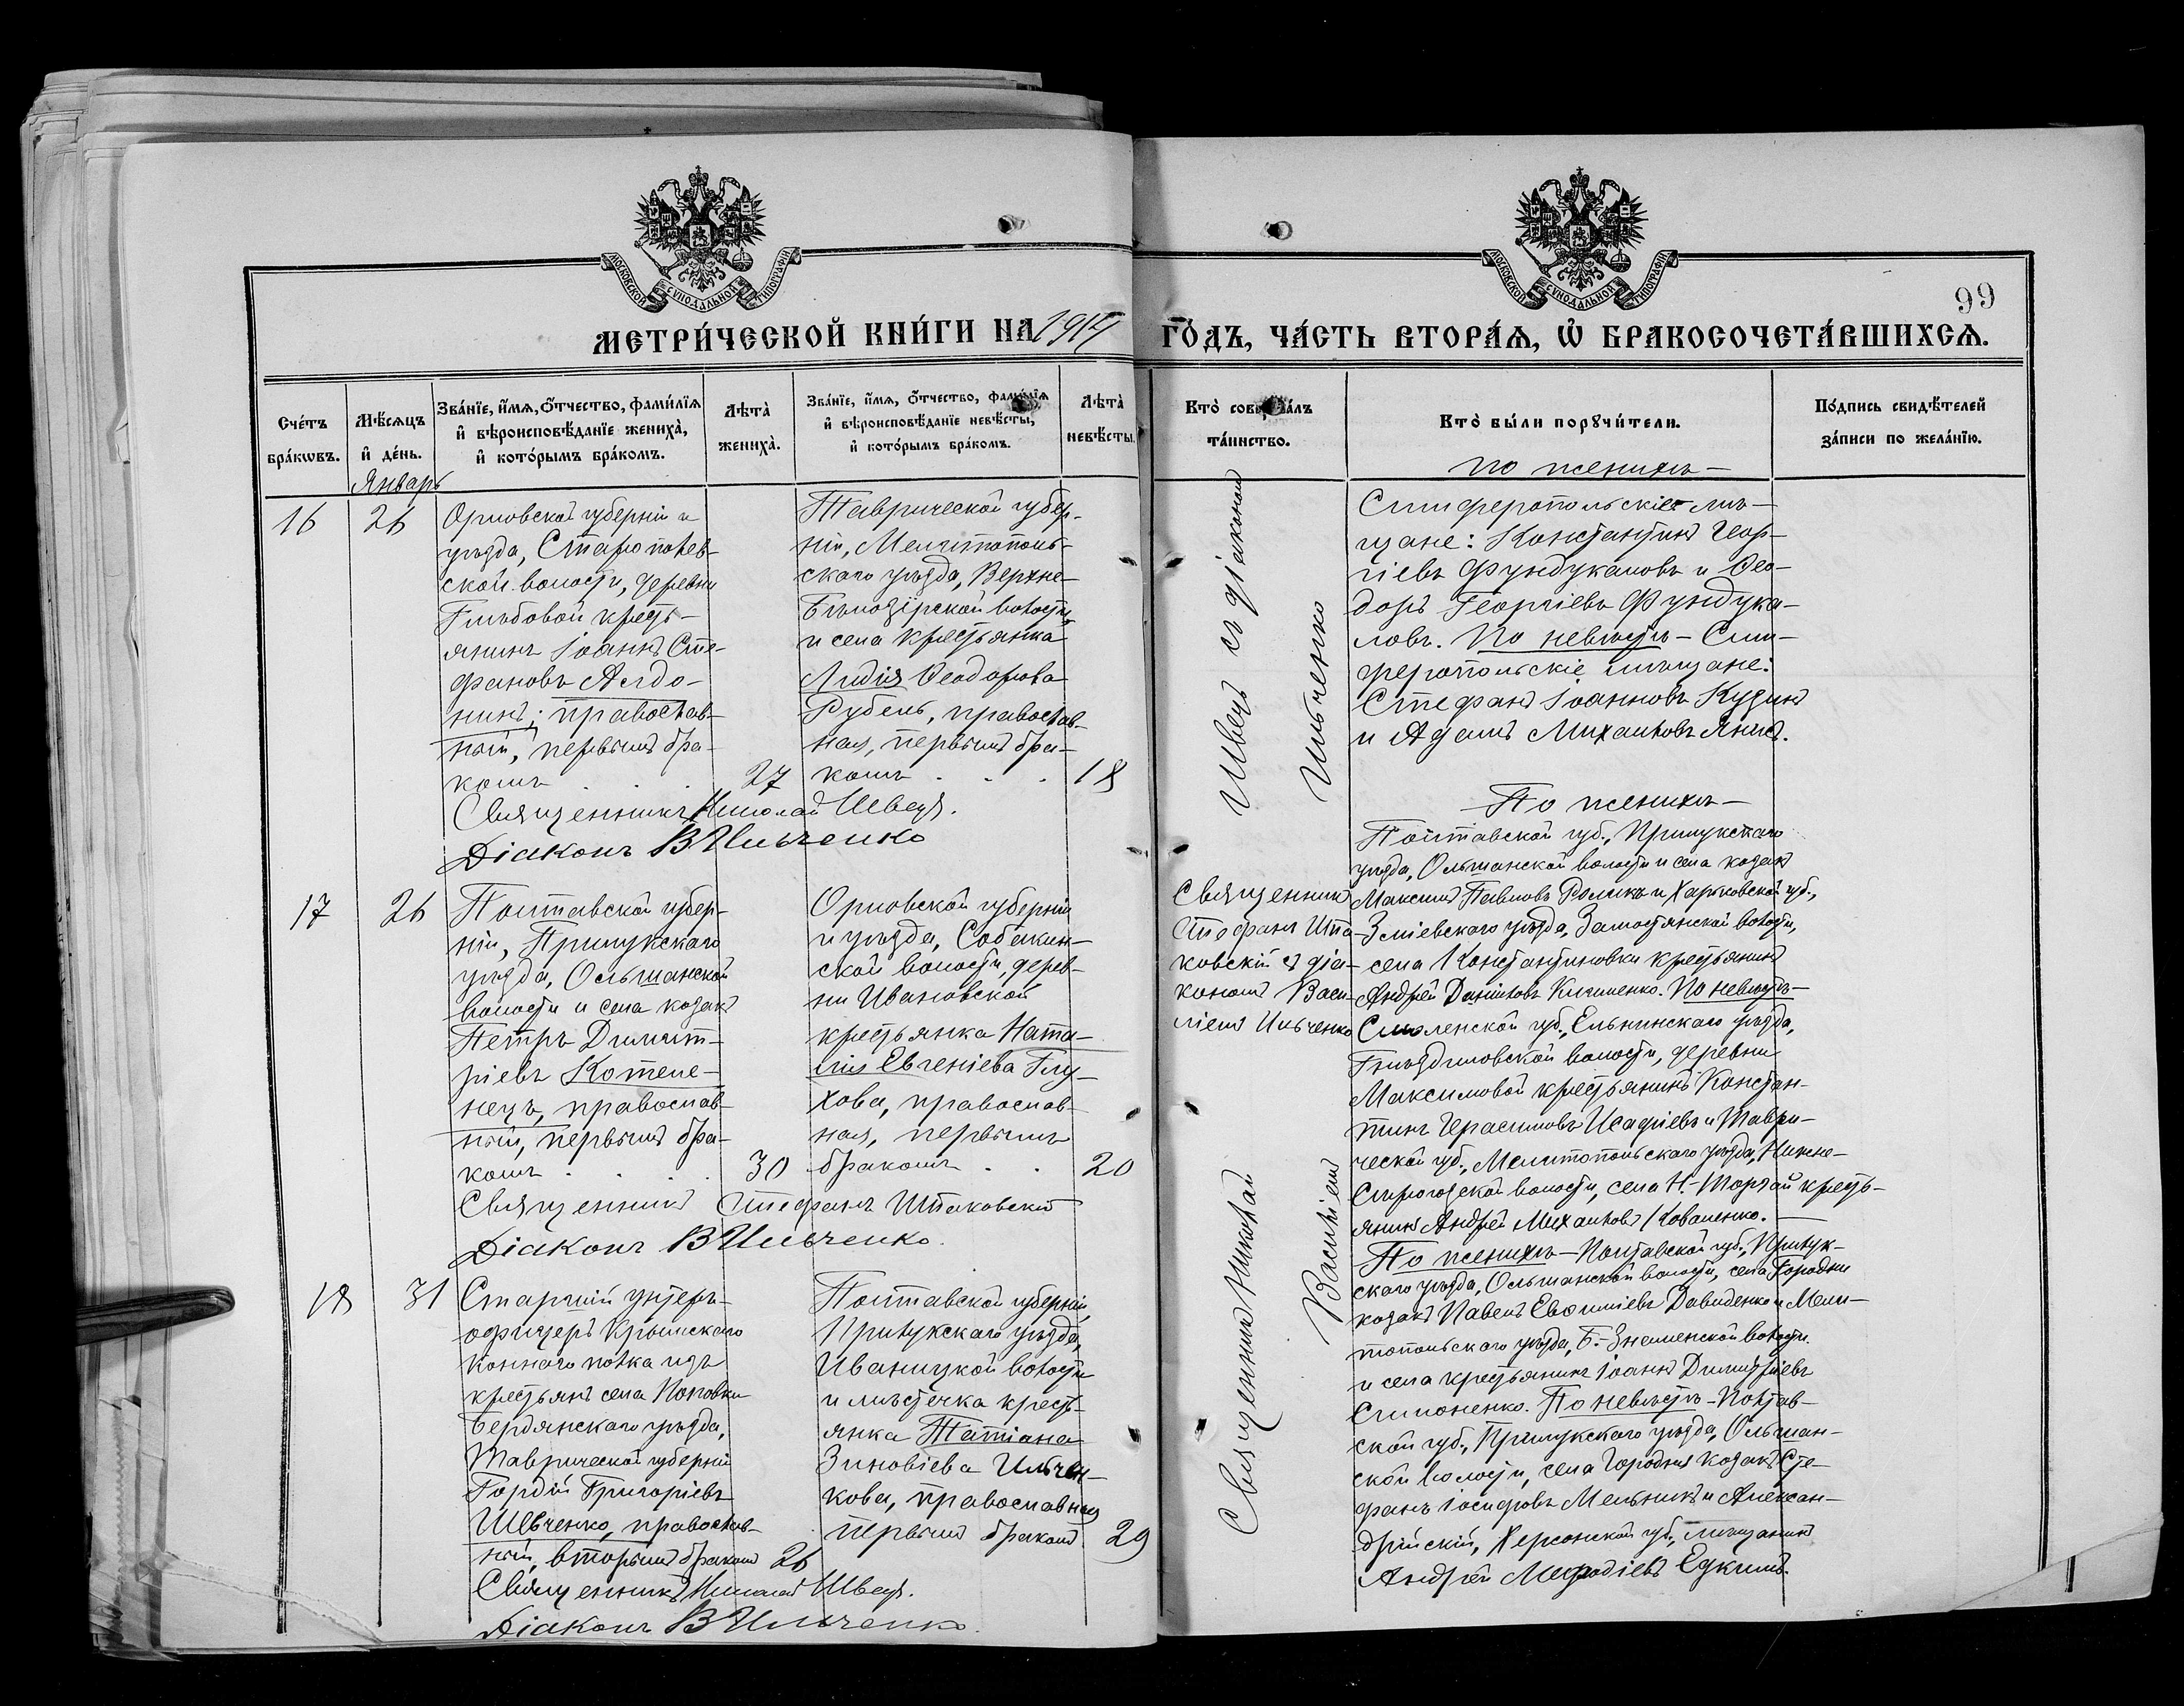 99
МОСКОВСКОЙ СѴНОДАЛЬНОЙ ТИПОГРАФІИ
МОСКОВСКОЙ СѴНОДАЛЬНОЙ ТИПОГРАФІИ
МЕТРИ́ЧЕСКОЙ КНИ́ГИ НА 1914 ГО́ДЪ, ЧА́СТЬ ВТОРА́Ѧ, Ѡ҆ БРАКОСОЧЕТА́ВШИХСѦ.
Сче́тъ
бра́кѡвъ.
Мѣ́сяцъ
и҆ де́нь.
Зва́нїе, и҆́мѧ, ѻ҆́тчество, фами́лїѧ
и҆ вѣроисповѣ́данїе жениха̀,
и҆ кото́рымъ бра́комъ.
Лѣта̀
жениха̀.
Зва́нїе, и҆́мѧ, ѻ҆́тчество, фами́лїѧ
и҆ вѣроисповѣ́данїе невѣ́сты,
и҆ кото́рымъ бра́комъ.
Лѣта̀
невѣ́сты.
Кто̀ соверша́лъ
та́инство.
Кто̀ бы́ли порꙋчи́тели.
По́дпись свидѣ́телей
за́писи по жела́нїю.
Январь
16
26
Орловской губерніи и
уѣзда, Старо
ской волости, деревни
Глѣбовой кресть-
янинъ Іоаннъ Сте-
фановъ Алдо-
нинъ; православ-
ный, первымъ бра-
комъ . . . 27
Таврической губер-
ніи, Мелитополь-
скаго уѣзда, Верхне-
Бѣлозірской волости
и села крестьянка
Лидія Ѳеодорова
Рубель, православ-
ная, первымъ бра-
комъ . . . 18
Священникъ Николай Швецъ.
Діаконъ В Ильченко
Священникъ Николай Швецъ съ діакономъ
Василіемъ Ильченко
По женихѣ —
Симферопольскіе мѣ-
щане: Константинъ Геор-
гіевъ Фундукаловъ и Ѳео-
доръ Георгіевъ Фундука-
ловъ. По невѣстѣ — Сим-
феропольскіе мѣщане:
Стефанъ Іоанновъ Кузинъ
и Адамъ Михаиловъ
17
26
Полтавской губер-
ніи, Прилукскаго
уѣзда, Ольшанской
волости и села козакъ
Петръ Димит-
ріевъ Котеле-
нецъ, православ-
ный, первымъ бра-
комъ . . . 30
Орловской губерніи
и уѣзда, Собакин-
ской волости, дерев-
ни Ивановской
крестьянка Ната-
лія Евгеніева Глу-
хова, православ-
ная, первымъ
бракомъ . . 20
Священникъ Стефанъ Шпаковскій
Діаконъ В Ильченко.
Священникъ
Стефанъ Шпа-
ковскій съ діа-
кономъ Васи-
ліемъ Ильченко
По женихѣ —
Полтавской губ., Прилукскаго
уѣзда, Ольшанской волости и села козакъ
Максимъ Павловъ и Харьковской губ.,
Зміевскаго уѣзда, Замостянской волости,
села Константиновки крестьянинъ
Андрей Даніиловъ По невѣстѣ —
Смоленской губ., Ельнинскаго уѣзда,
волости, деревни
Максимовой крестьянинъ Констан-
тинъ Герасимовъ и Таври-
ческой губ., Мелитопольскаго уѣзда, Нижне-
Сѣрогозской волости, села Н.-Торгай кресть-
янинъ Андрей Михаиловъ Коваленко. —
18
31
Старшій унтеръ-
офицеръ Крымскаго
Коннаго полка изъ
крестьянъ села Поповки
Бердянскаго уѣзда,
Таврической губерніи
Гордій Григоріевъ
Шевченко, православ-
ный, вторымъ бракомъ 26
Полтавской губерніи,
Прилукскаго уѣзда,
Иваницкой волости
и мѣстечка кресть-
янка Татіана
Зиновіева Ильчен-
кова, православная
первымъ бракомъ 29
Священникъ Николай Швецъ.
Діаконъ В Ильченко.
По женихѣ — Полтавской губ., Прилук-
скаго уѣзда, Ольшанской волости, села Городни
козакъ Павелъ Евѳиміевъ Давиденко и Мели-
топольскаго уѣзда, Б.-Знаменской волости
и села крестьянинъ Іоаннъ Димитріевъ
Симоненко. По невѣстѣ — Полтав-
ской губ., Прилукскаго уѣзда, Ольшан-
ской волости, села Городни козакъ Сте-
фанъ Іосифовъ Мельникъ и Алексан-
дрійскій, Херсонской губ., мѣщанинъ
Андрей Меѳодіевъ